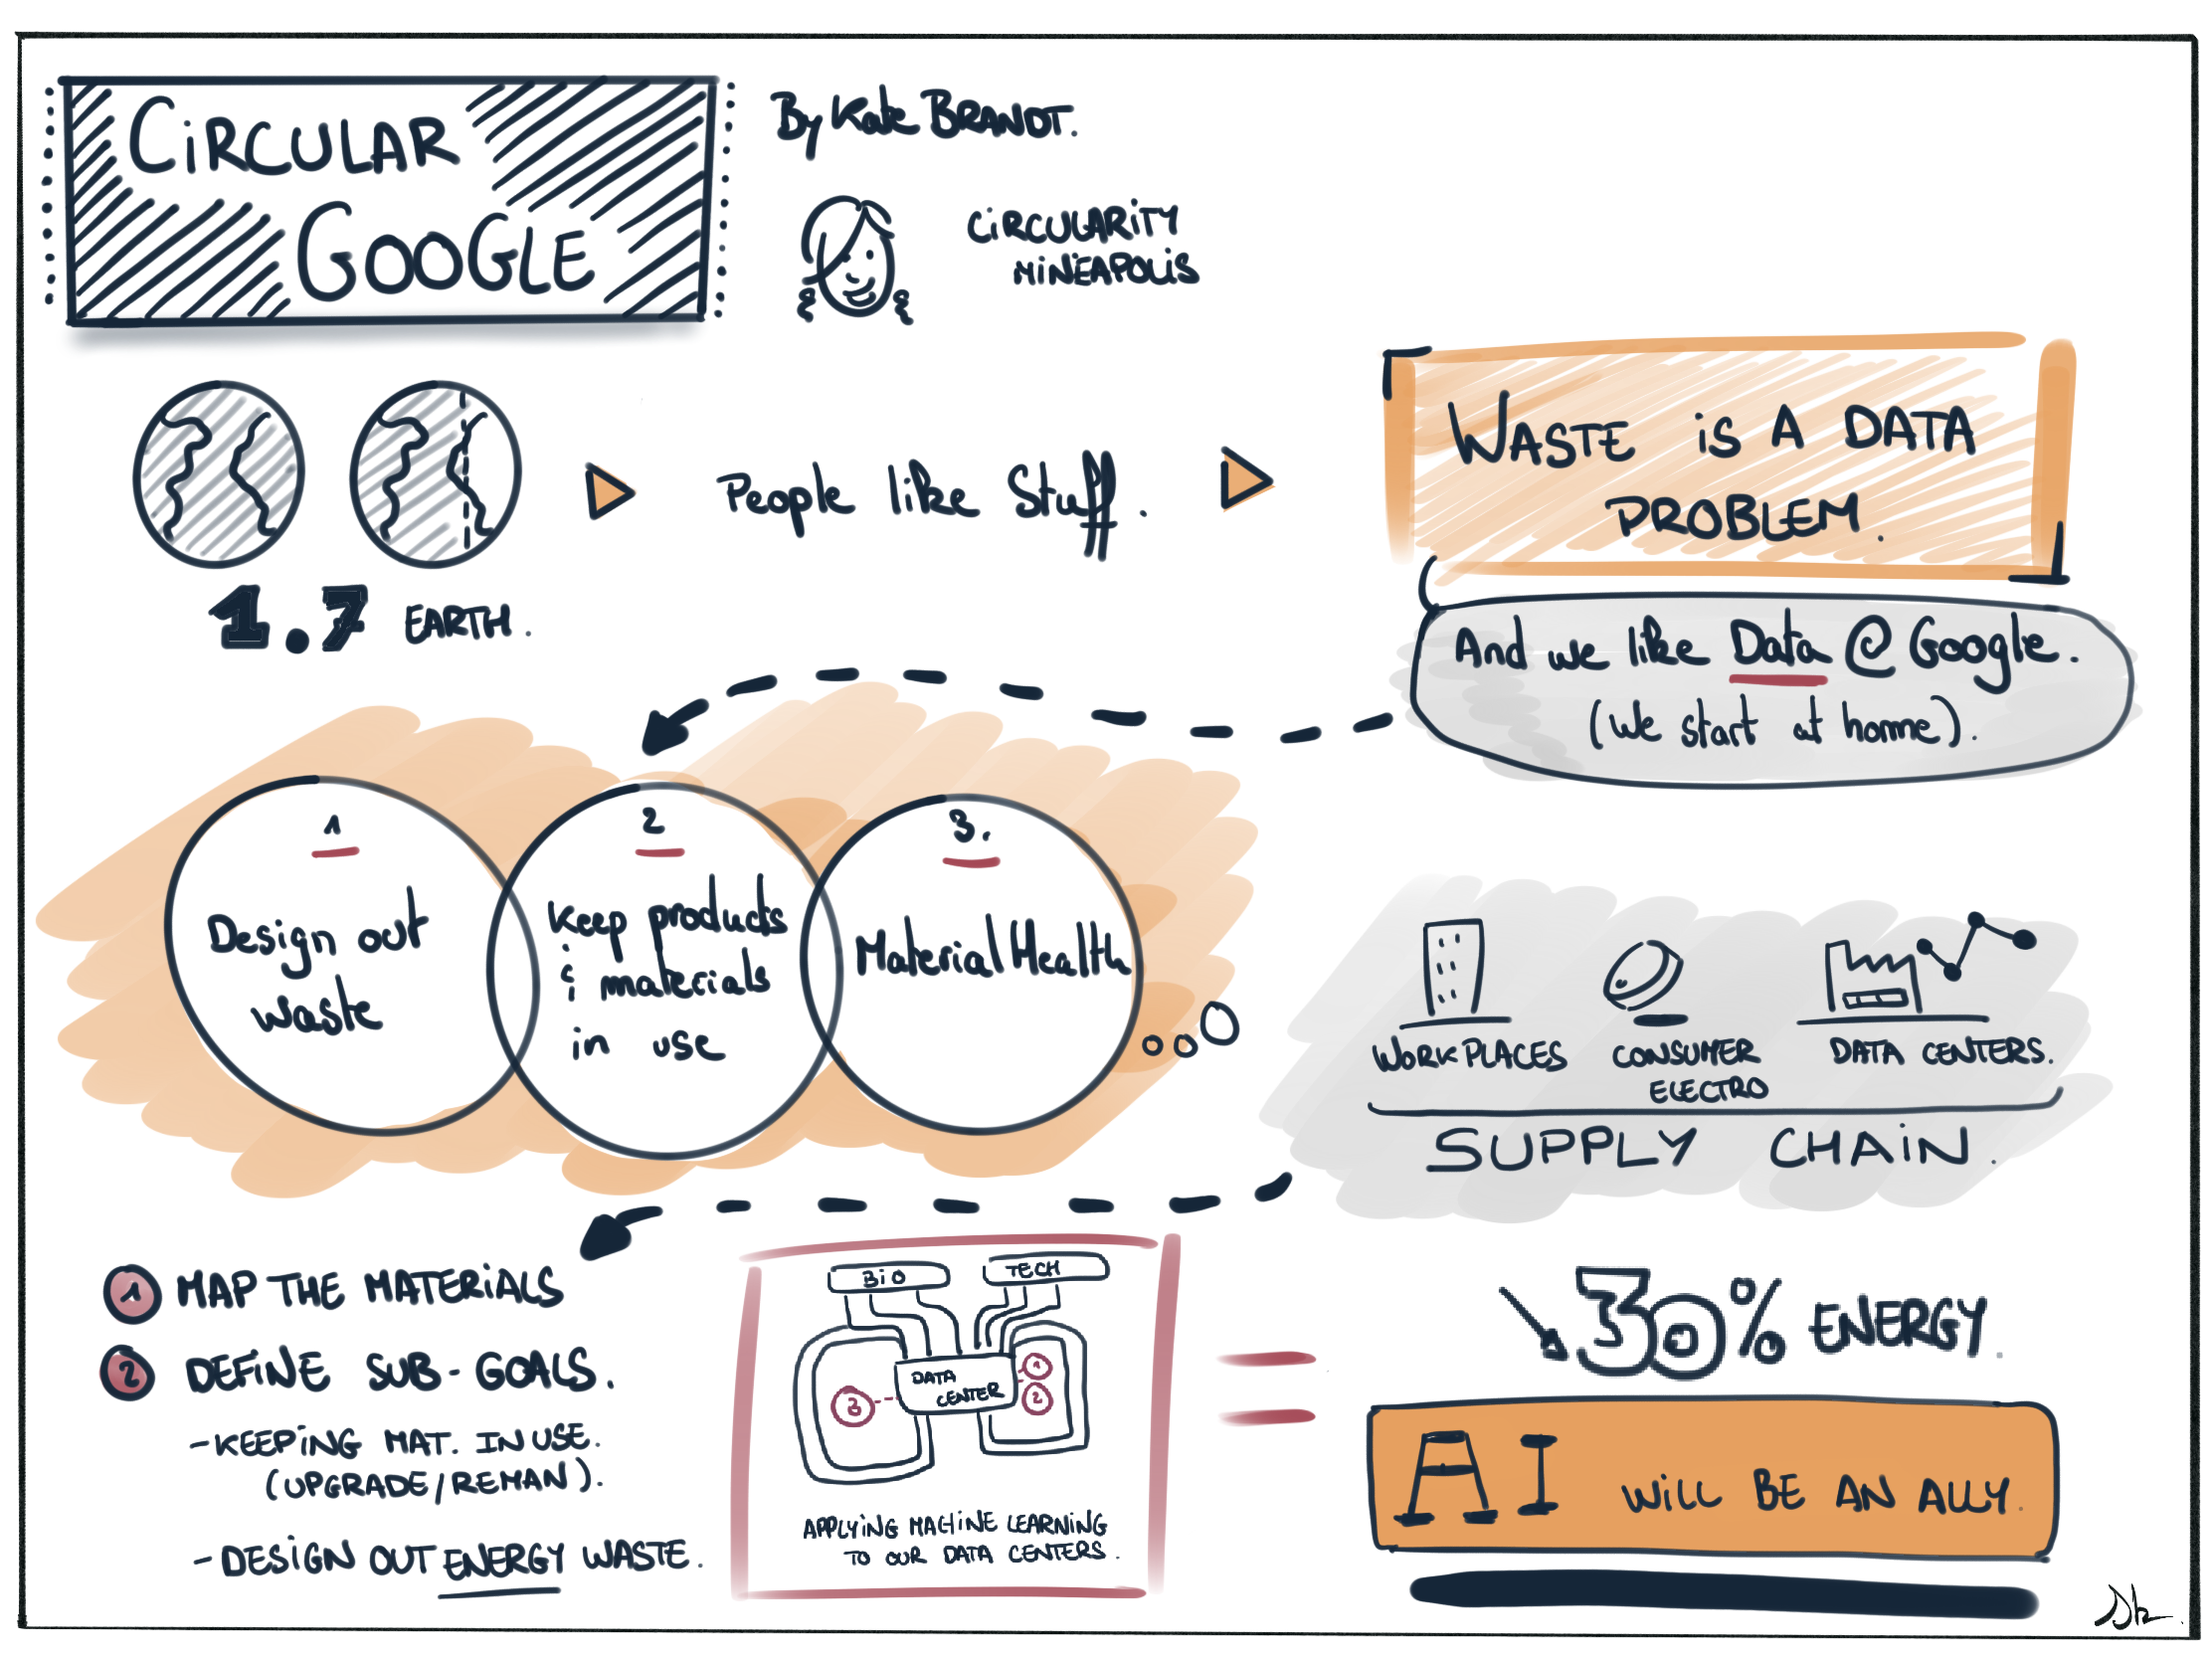 CiRCULAR
GOOGLE
By Kate BRANDT.
CiRCULARiTY
MiNEAPOLiS
1.7 EARTH.
People like Stuff.
WASTE iS A DATA
PROBLEM.
And we like Data @ Google.
(We start at home).
1
Design out
waste
2
Keep products
& materials
in use
3.
Material Health
WORKPLACES
CONSUMER
ELECTRO
DATA CENTERS.
SUPPLY CHAiN.
1 MAP THE MATERiALS
2 DEFiNE SUB-GOALS.
- KEEPiNG MAT. IN USE.
(UPGRADE/REMAN).
- DESiGN OUT ENERGY WASTE.
BiO
TECH
DATA
CENTER
3
1
2
APPLYiNG MACHiNE LEARNiNG
TO OUR DATA CENTERS.
=
30% ENERGY.
AI WiLL BE AN ALLY.